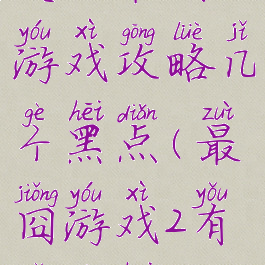 yóu xì gōng lüè jǐ
游戏攻略几
gè hēi diǎn zuì
个黑点(最
jiǒng yóu xì yǒu
囧游戏2有